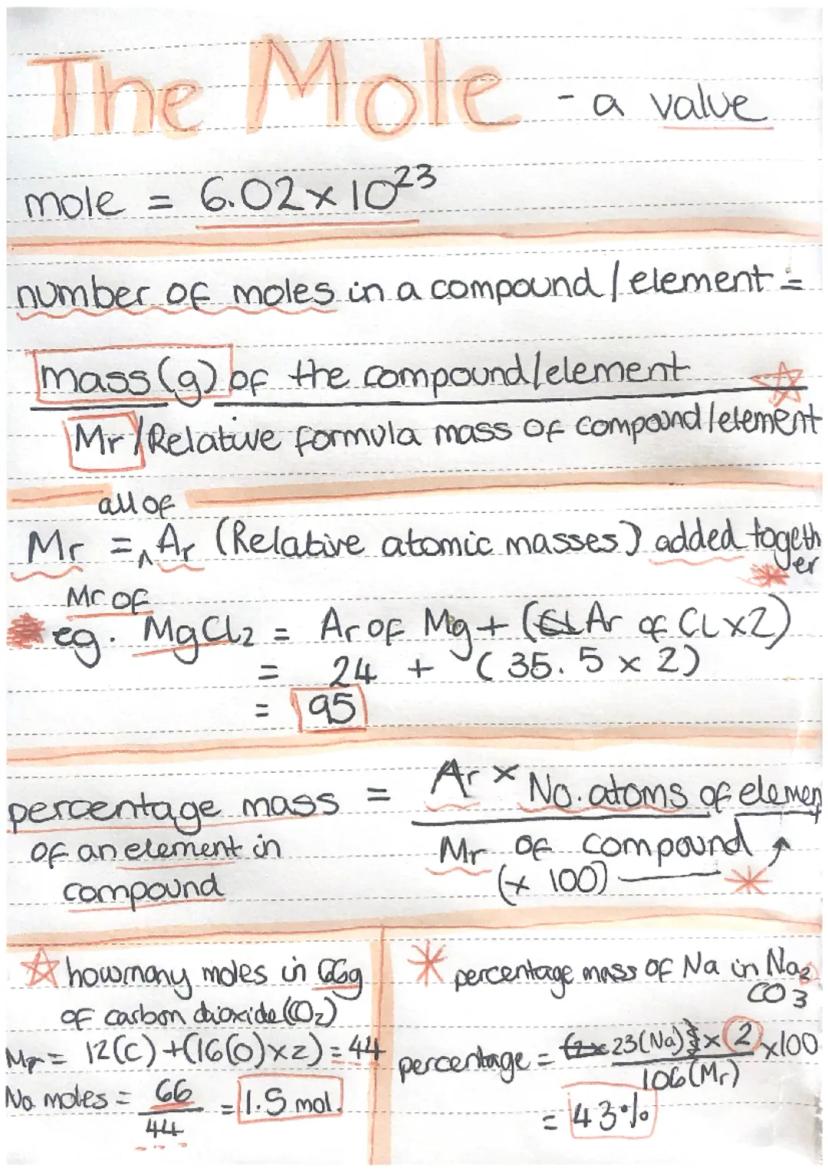 The Mole - a value
mole = 6.02 x 10²³
number of moles in a compound / element =
mass (g) of the compound/element
Mr / Relative formula mass of compound/element
all of
Mr = ^ Ar (Relative atomic masses) added togeth
er
Mr of
eg. MgCl₂ = Ar of Mg + (Ar of Cl x 2)
= 24 + (35.5 x 2)
= 95
percentage mass = Ar x No. atoms of elemen
of an element in
Mr of compound
compound
(x 100)
how many moles in 66g
of carbon dioxide (CO₂)
Mr = 12(C) + (16(O) x 2) = 44
No. moles = 66
44
= 1.5 mol.
percentage mass of Na in Na₂
CO3
percentage = 23(Na) x 2 x100
106 (Mr)
= 43%